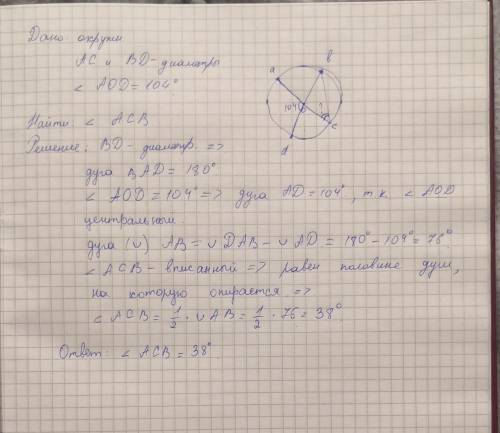 Дано окружн
AC и BD - диаметры
∠ AOD = 104°
Найти: ∠ ACB
Решение: BD - диаметр. =>
дуга BAD = 180°
∠ AOD = 104° => дуга AD = 104°, т.к. ∠ AOD
центральн.
дуга (∪) AB = ∪ DAB - ∪ AD = 180° - 104° = 76°.
∠ ACB - вписанный => равен половине дуги,
на которую опирается =>
∠ ACB = 1/2 · ∪ AB = 1/2 · 76 = 38°
Ответ: ∠ ACB = 38°
a
b
104°
?
c
d